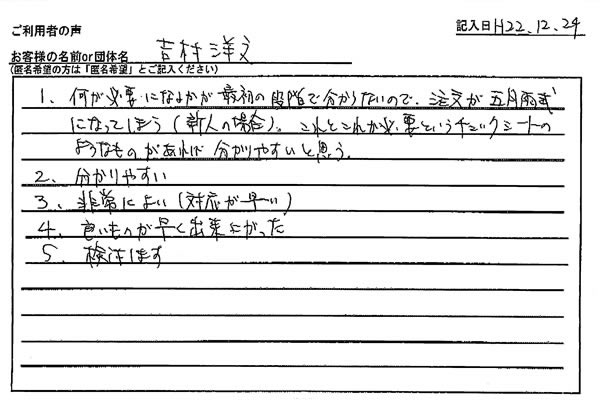 ご利用者の声
記入日 H22.12.24
お客様の名前or団体名 吉村洋文
(匿名希望の方は「匿名希望」とご記入ください)
1、何が必要になるかが最初の段階で分からないので、注文が五月雨式
になってしまう(新人の場合)。これとこれが必要というチェックシートの
ようなものがあれば分かりやすいと思う。
2、分かりやすい
3、非常によい(対応が早い)
4、良いものが早く出来上がった
5、検討します